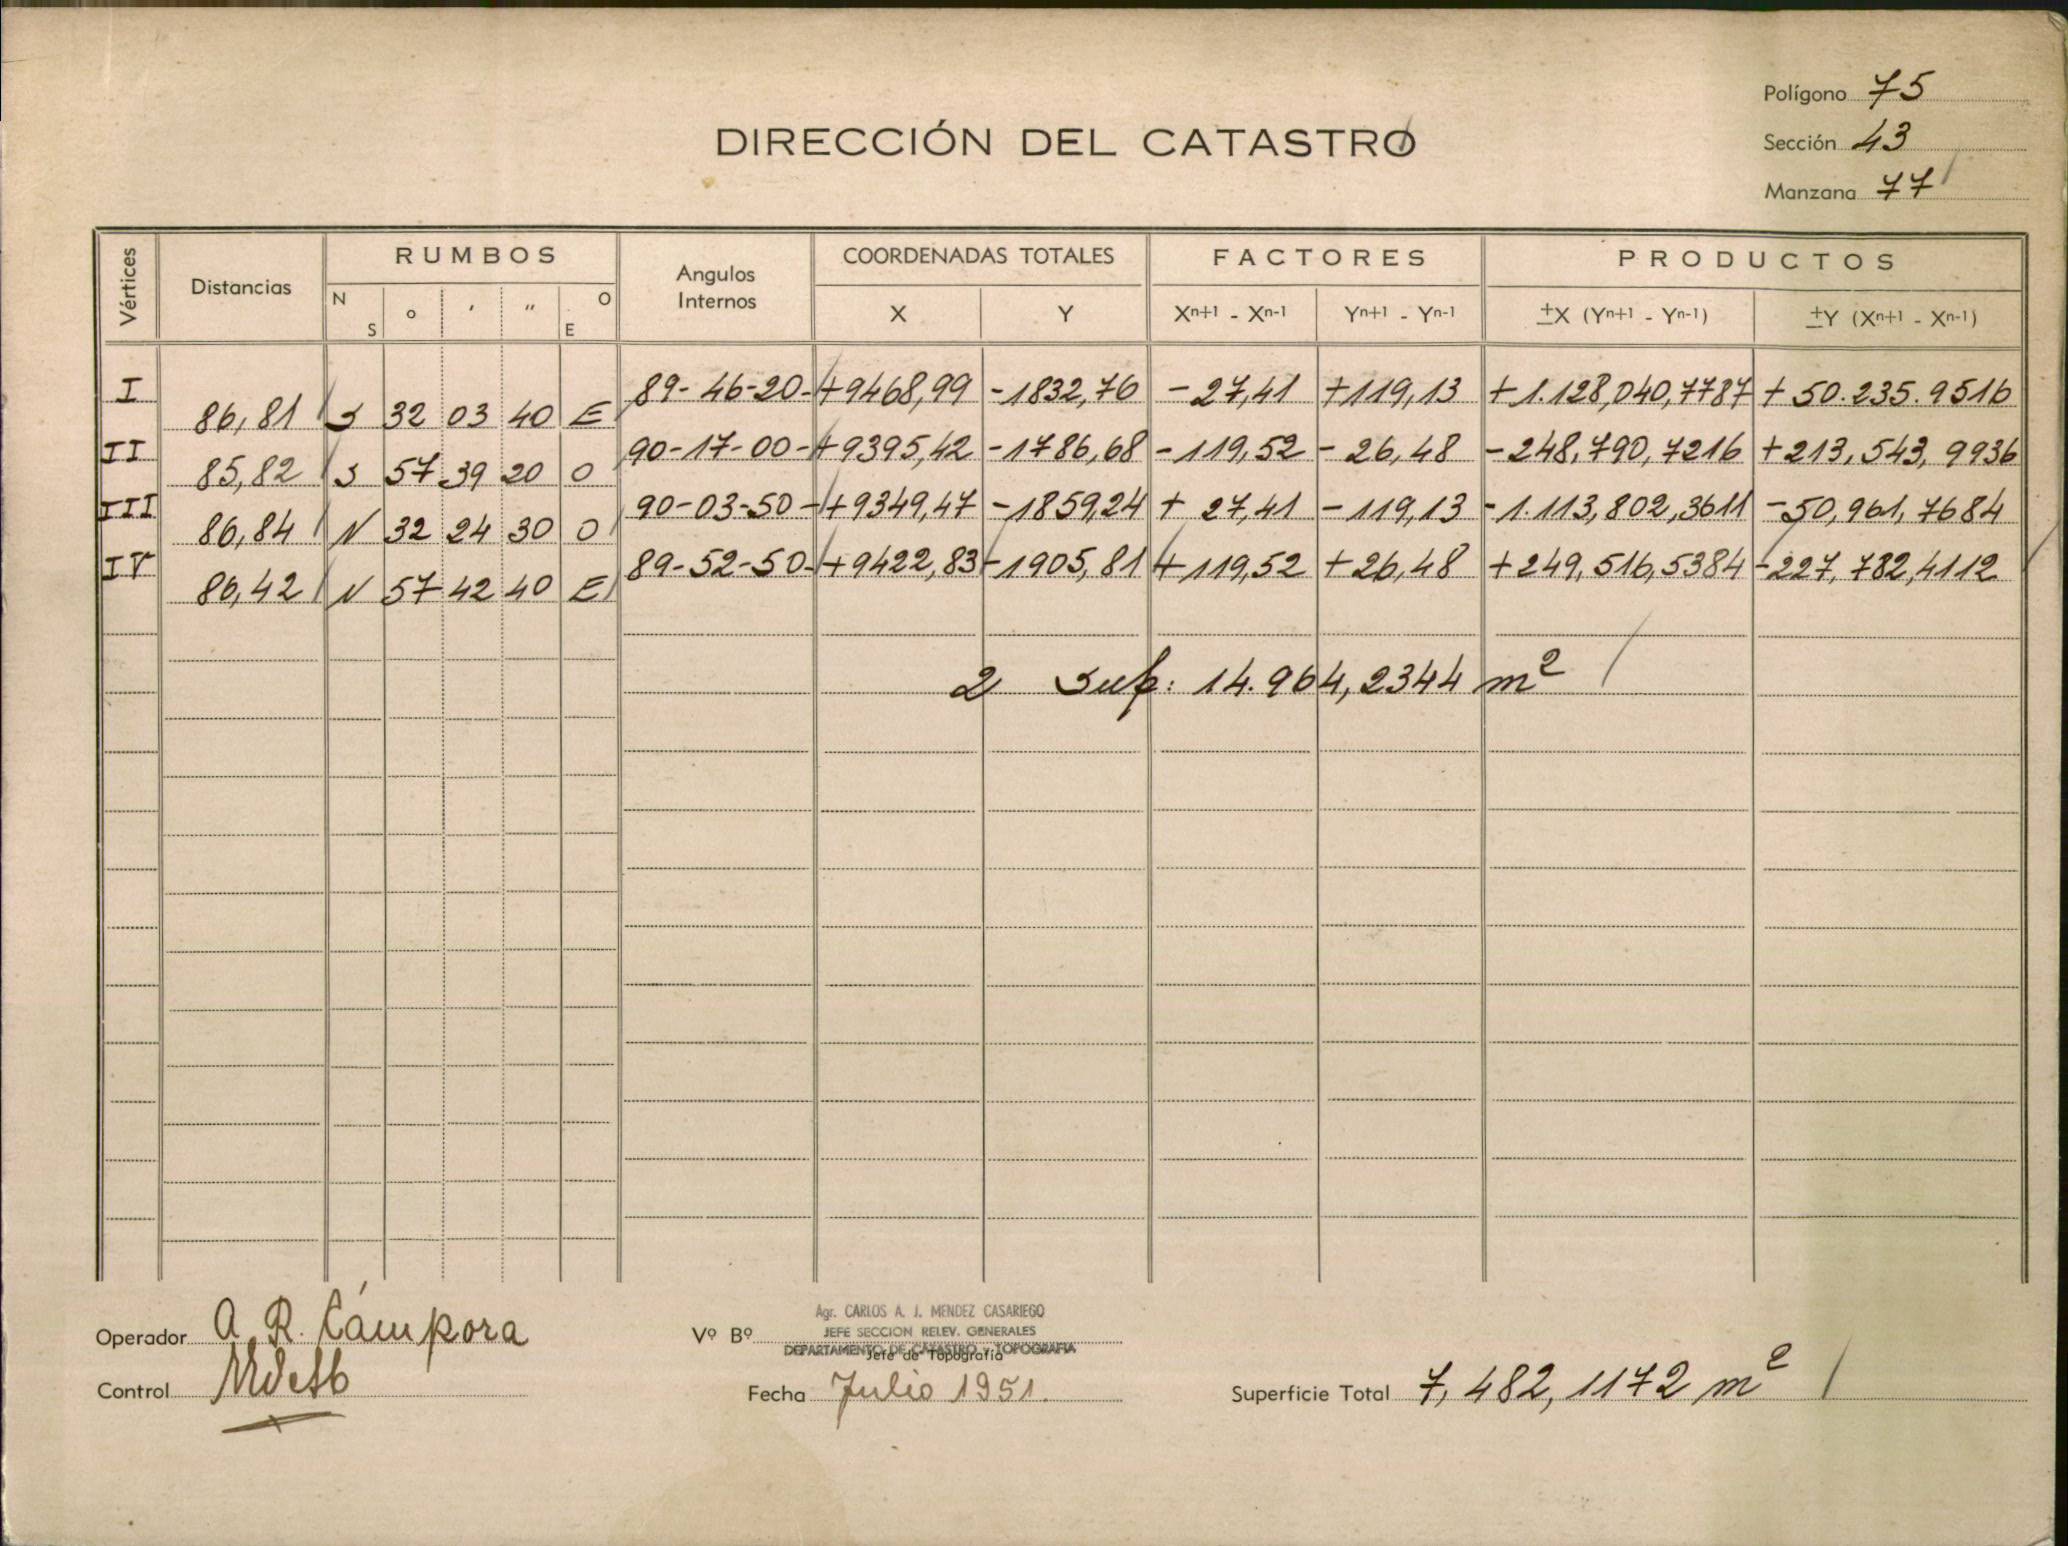 Polígono 75
DIRECCIÓN DEL CATASTRO
Sección 43
Manzana 77
Vértices Distancias RUMBOS Angulos Internos COORDENADAS TOTALES FACTORES PRODUCTOS
N S ° ' " O E X Y Xn+1 - Xn-1 Yn+1 - Yn-1 ±X (Yn+1 - Yn-1) ±Y (Xn+1 - Xn-1)
I 89-46-20- +9468,99 -1832,76 -27,41 +119,13 +1.128,040,7787 +50.235.9516
86,81 S 32 03 40 E
II 90-17-00- +9395,42 -1786,68 -119,52 -26,48 -248,790,7216 +213,543,9936
85,82 S 57 39 20 O
III 90-03-50- +9349,47 -1859,24 +27,41 -119,13 -1.113,802,3611 -50,961,7684
86,84 N 32 24 30 O
IV 89-52-50- +9422,83 -1905,81 +119,52 +26,48 +249,516,5384 -227,782,4112
86,42 N 57 42 40 E
2 Sup: 14.964,2344 m²
Agr. CARLOS A. J. MENDEZ CASARIEGO
Operador A. R. Cámpora Vº Bº JEFE SECCION RELEV. GENERALES
DEPARTAMENTO DE CATASTRO y TOPOGRAFIA
Jefe de Topografía
Control Fecha Julio 1951. Superficie Total 7,482,1172 m²